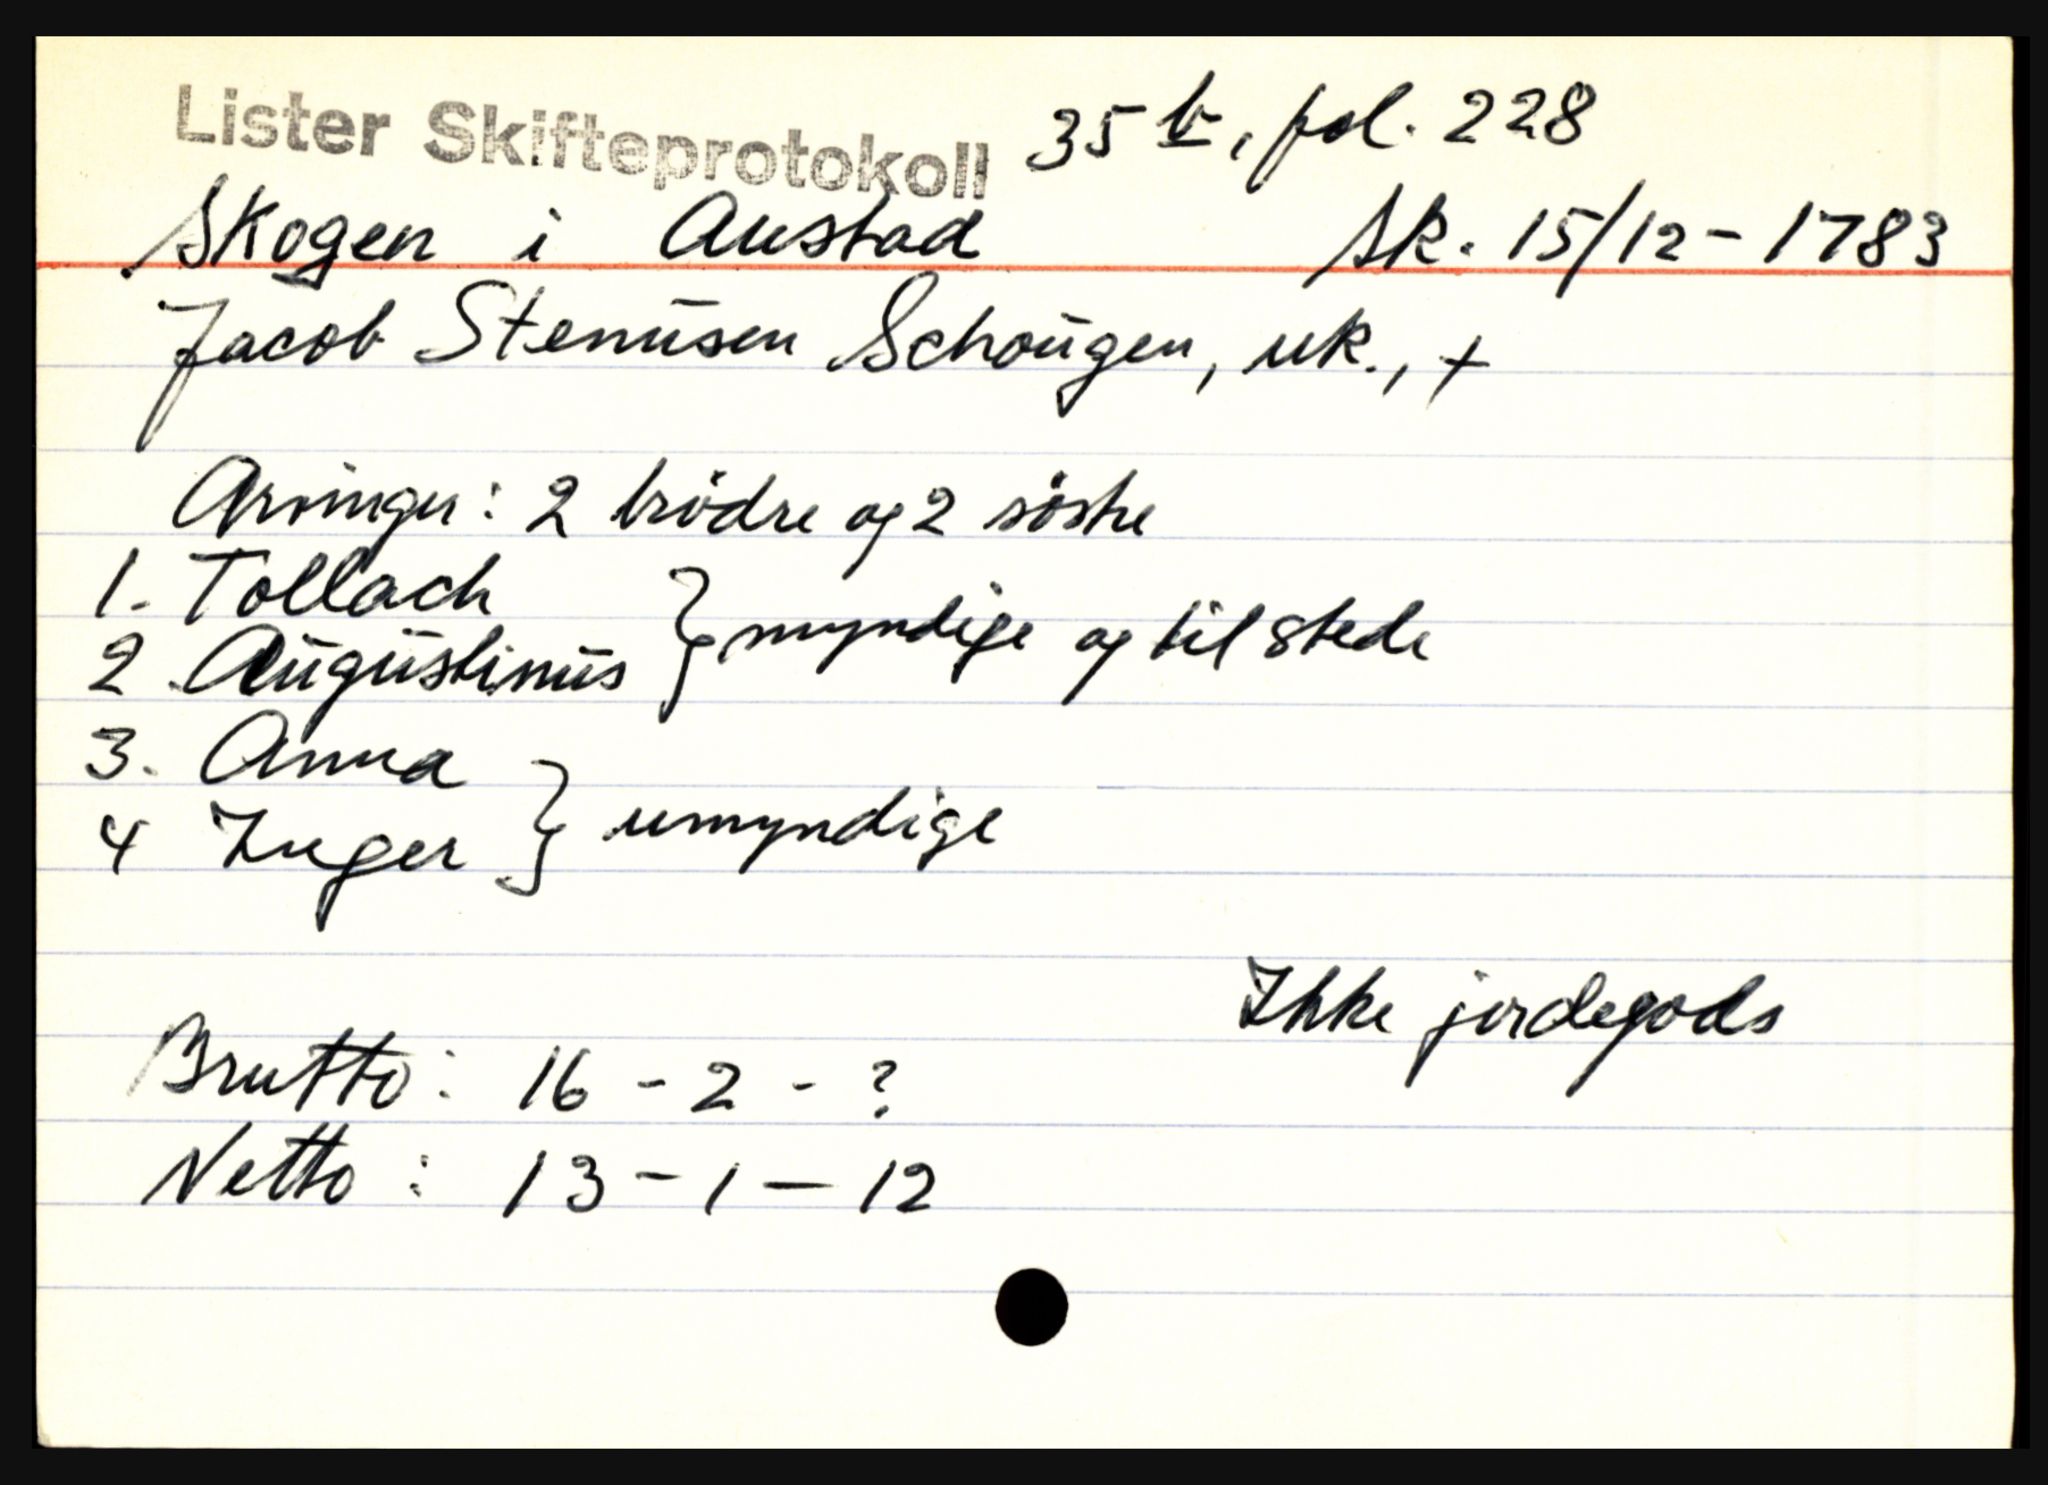 Lister Skifteprotokoll 35 b, fol. 228
Skogen i Austad Sk. 15/12-1783
Jacob Stenüsen Schoügen, uk., +
Arvinger: 2 brödre og 2 söstre
1. Tollach } myndige og til stede
2. Aügüstinüs
3. Anna } umyndige
4 Inger
Ikke jordegods
Brutto: 16 - 2 - ?
Netto: 13 - 1 - 12